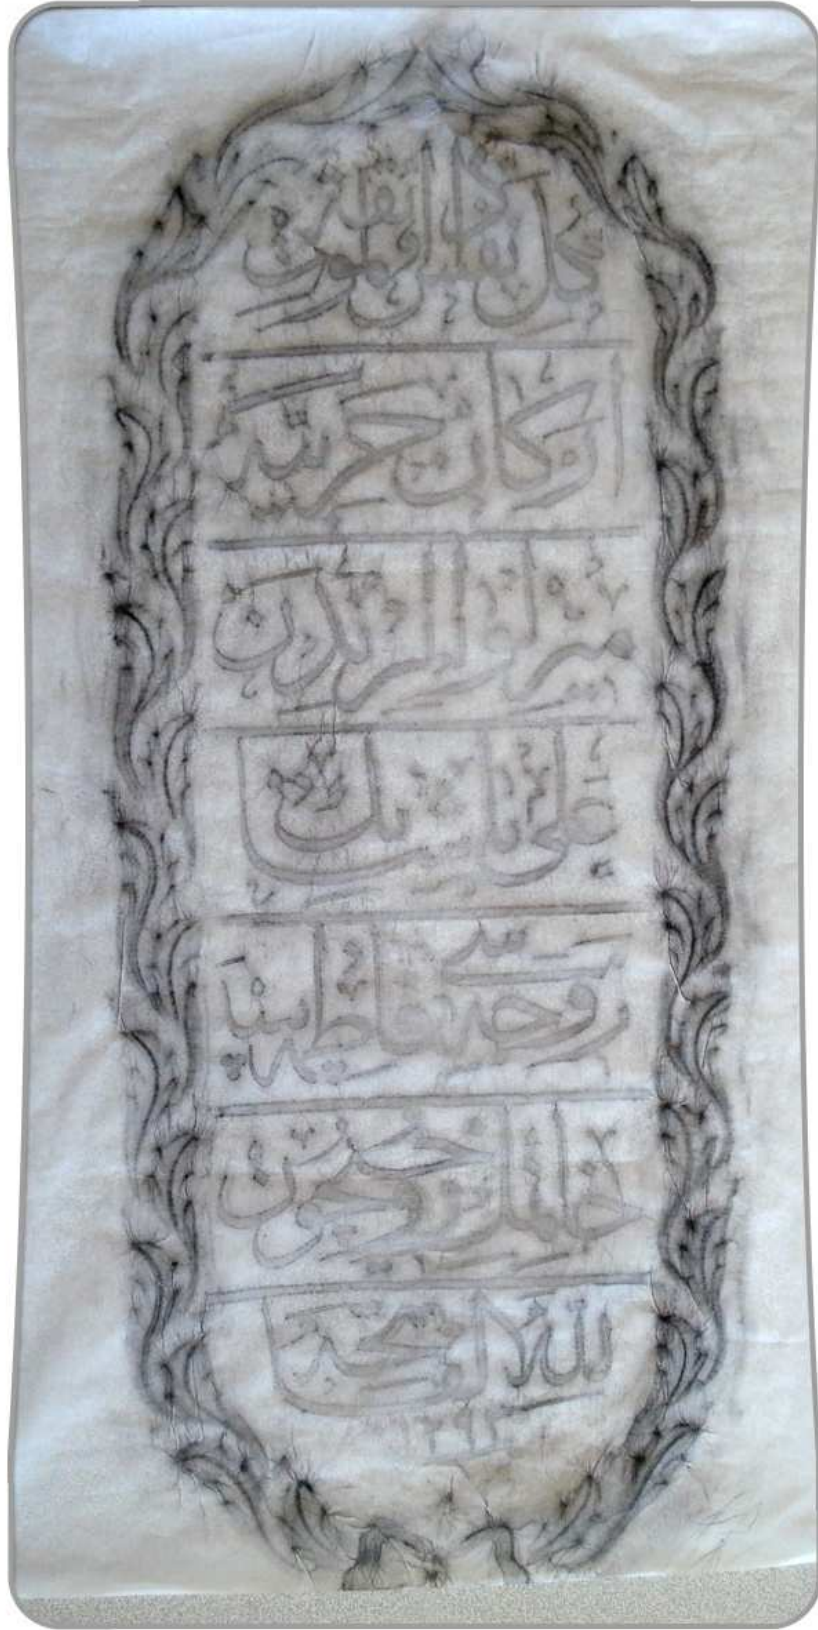 كل نفس ذائقة الموت
اركان حربيه
ميرالوالرندن
علی بك
زوجه سی فاطمه
خانمك روحیچون
لله الفاتحه
١٢٩٢